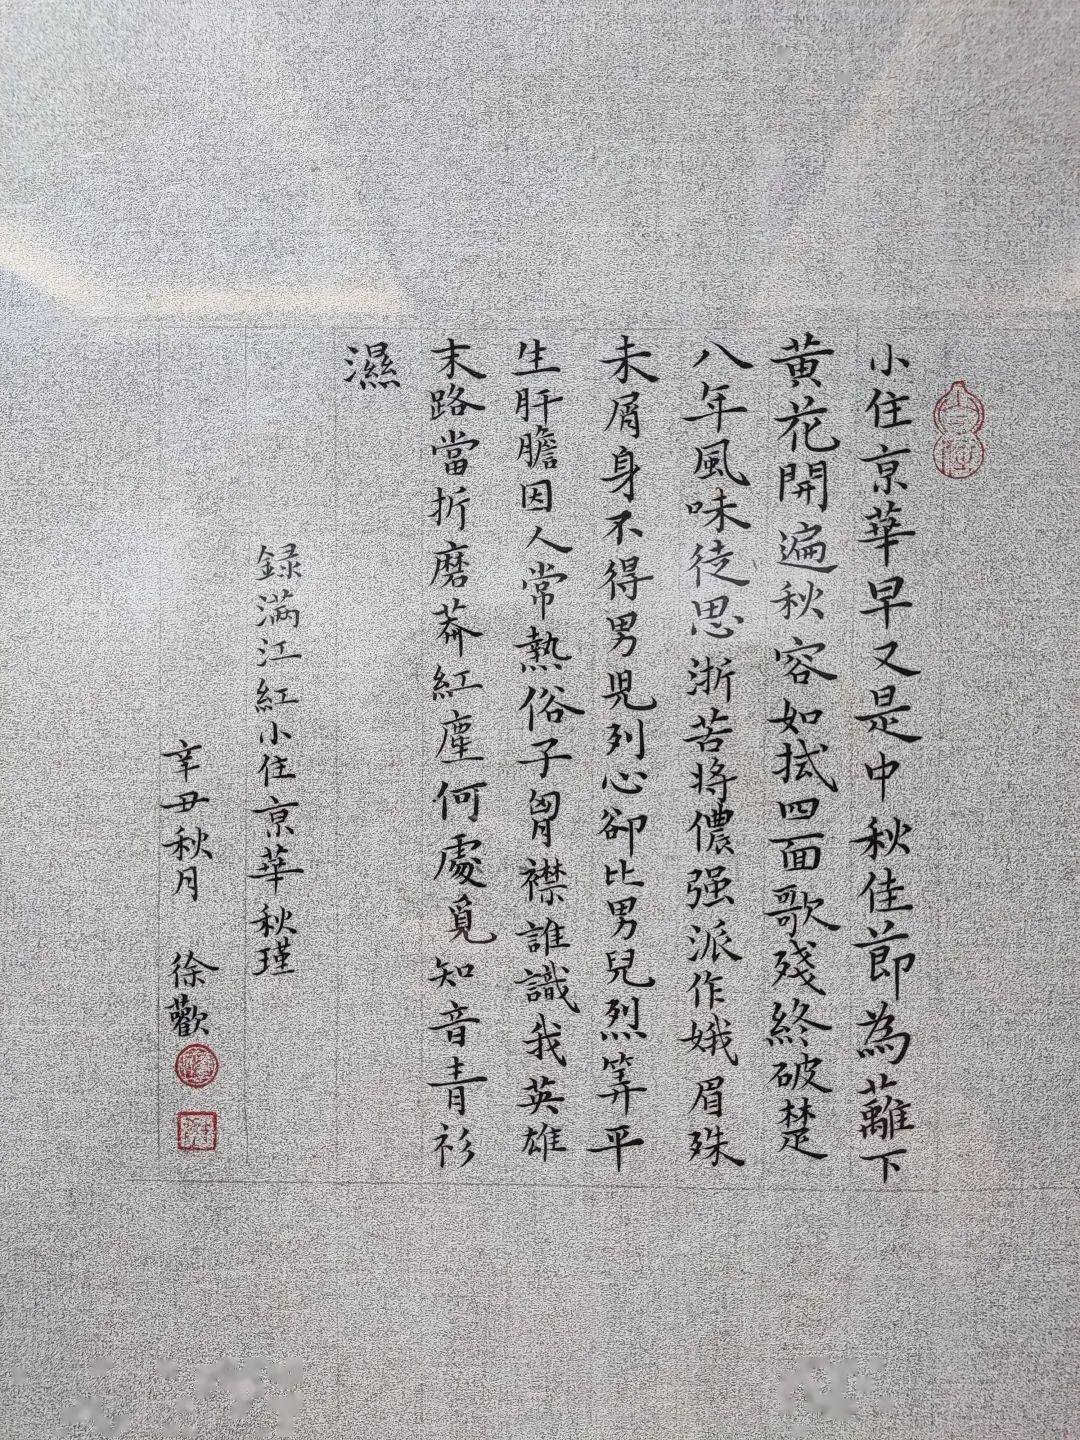 小住京華早又是中秋佳節為蘺下
黄花開遍秋容如拭四面歌殘終破楚
八年風味徒思浙苦將儂强派作娥眉殊
未屑身不得男児列心卻比男兒烈筭平
生肝膽因人常熱俗子胷襟誰識我英雄
末路當折磨莽紅塵何處覓知音青衫
濕
録滿江紅小住京華秋瑾
辛丑秋月 徐歡